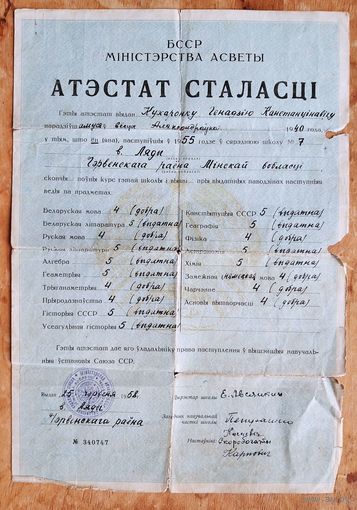 БССР
МІНІСТЭРСТВА АСВЕТЫ
АТЭСТАТ СТАЛАСЦІ
Гэты атэстат выдан Кухарчонку Генадзію Канстанцінавічу
1940 года,
у тым, што ён (яна), паступіўшы ў 1955 годзе ў сярэднюю школу № 7
в. Ляды
Чэрвеньскага раёна Мінскай вобласці
скончы поўны курс гэтай школы і выяві пры выдатных паводзінах наступныя
веды па прадметах.
Беларуская мова 4 (добра)
Беларуская літаратура 5 (выдатна)
Руская мова 4 (добра)
Руская літаратура 5 (выдатна)
Алгебра 5 (выдатна)
Геаметрыя 5 (выдатна)
Трыганаметрыя 4 (добра)
Прыродазнаўства 4 (добра)
Гісторыя СССР 5 (выдатна)
Усеагульная гісторыя 5 (выдатна)
Канстытуцыя СССР 5 (выдатна)
Геаграфія 5 (выдатна)
Фізіка 4 (добра)
Астраномія 5 (выдатна)
Хімія 5 (выдатна)
Замежная (нямецкая) мова 4 (добра)
Чарчэнне 4 (добра)
Асновы вытворчасці 4 (добра)
Гэты атэстат дае яго ўладальніку права паступлення ў вышэйшыя навучаль-
ныя ўстановы Саюза ССР.
Выдан 25 чэрвеня 1958.
в. Ляды
Чэрвеньскага раёна
№ 340747
Дырэктар школы
Загадчык навучальнай
часткі школы
Настаўнікі